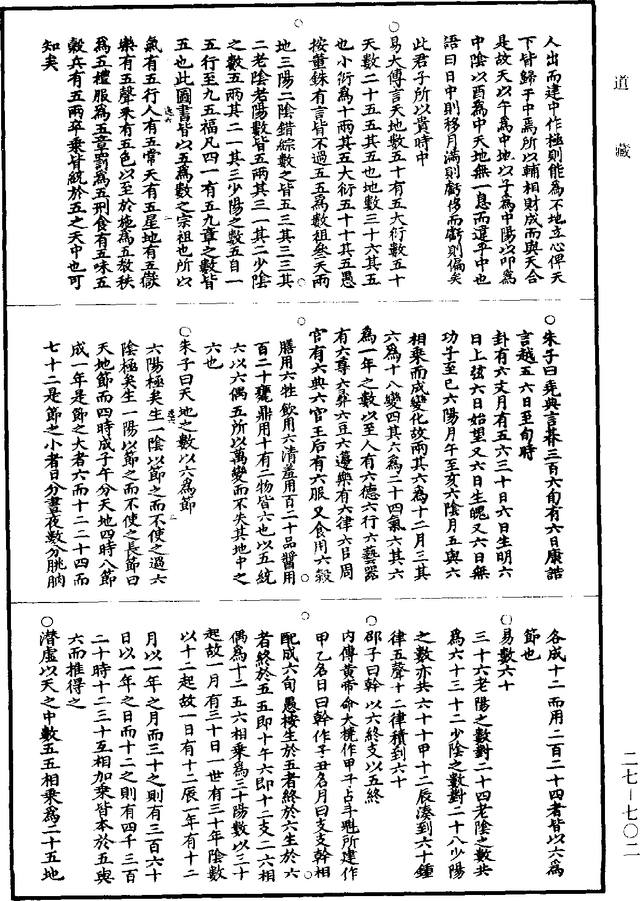 道藏
人出而建中作極則能為不地立心俾天
下皆歸于中焉所以輔相財成而與天合
是故天以午為中地以子為中陽以卯為
中陰以酉為中天地無一息而違乎中也
語曰日中則移月滿則虧侈而虧則偏矣
此君子所以貴時中
○易大傳言天地數五十有五大衍數五十
天數二十五五其五也地數三十六其五
也小衍為十兩其五大衍五十十其五愚
按董銖有言皆不過五五為數祖叄天兩
地三陽二陰錯綜數之皆五三其三三其
二老陰老陽數皆五兩其三一其二少陰
之數五兩其二一其三少陽之數五自一
五行至九五福凡四一有五九章之數皆
五也此圖書皆以五為數之宗祖也所以
氣有五行人有五常天有五星地有五嶽
樂有五聲采有五色以至於施為五教秩
為五禮服為五章罰為五刑食有五味五
穀兵有五兩卒乘皆統於五之天中也可
知矣
○朱子曰堯典言朞三百六旬有六日康誥
言越五六日至旬時
卦有六爻月有五六三十日六日生明六
日上弦六日始望又六日生魄又六日無
功子至巳六陽月午至亥六陰月五與六
相乘而成變化故兩其六為十二月三其
六為十八變四其六為二十四氣六其六
為一年之數以至人有六德六行六藝器
有六尊六彝六豆六籩樂有六律六呂周
官有六典六官王后有六服又食用六穀
膳用六牲飲用六清羞用百二十品醬用
百二十甕鼎用十有二物皆六也以五統
六以六偶五所以萬變而不失其地中之
六也
○朱子曰天地之數以六為節
六陽極矣生一陰以節之而不使之過六
陰極矣生一陽以節之而不使之長節曰
天地節而四時成子午分天地四時八節
成一年是節之大者六而十二二十四而
七十二是節之小者日分晝夜數分朓朒
各成十二而用二百二十四者皆以六為
節也
○易數六十
三十六老陽之數對二十四老陰之數共
為六十三十二少陰之數對二十八少陽
之數亦共六十十甲十二辰湊到六十鍾
律五聲十二律積到六十
○邵子曰幹以六終支以五終
內傳黃帝命大橈作甲子占斗剛所建作
甲乙名日曰幹作子丑名月曰支支幹相
配成六旬愚按生於五者終於六生於六
者終於五五即十午六即十二支二六相
偶為十二五六相乘為三十陽數以三十
起故一月有三十日一世有三十年陰數
以十二起故一日有十二辰一年有十二
月以一年之月而三十之則有三百六十
日以一年之日而十二之則有四千三百
二十時十二三十互相加乘皆本於五與
六而推得之
○潛虛以天之中數五五相乘為二十五地
二七—七〇二